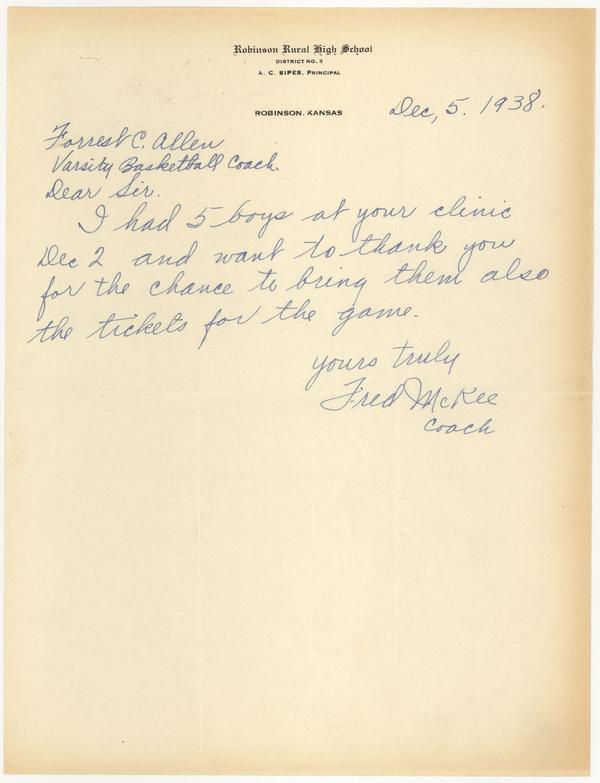 Robinson Rural High School
DISTRICT NO. 3
A. C. SIPES, PRINCIPAL
ROBINSON, KANSAS
Dec, 5. 1938.
Forrest C. Allen
Varsity Basketball Coach.
Dear Sir.
I had 5 boys at your clinic
Dec 2 and want to thank you
for the chance to bring them also
the tickets for the game.
yours truly
Fred McKee
Coach